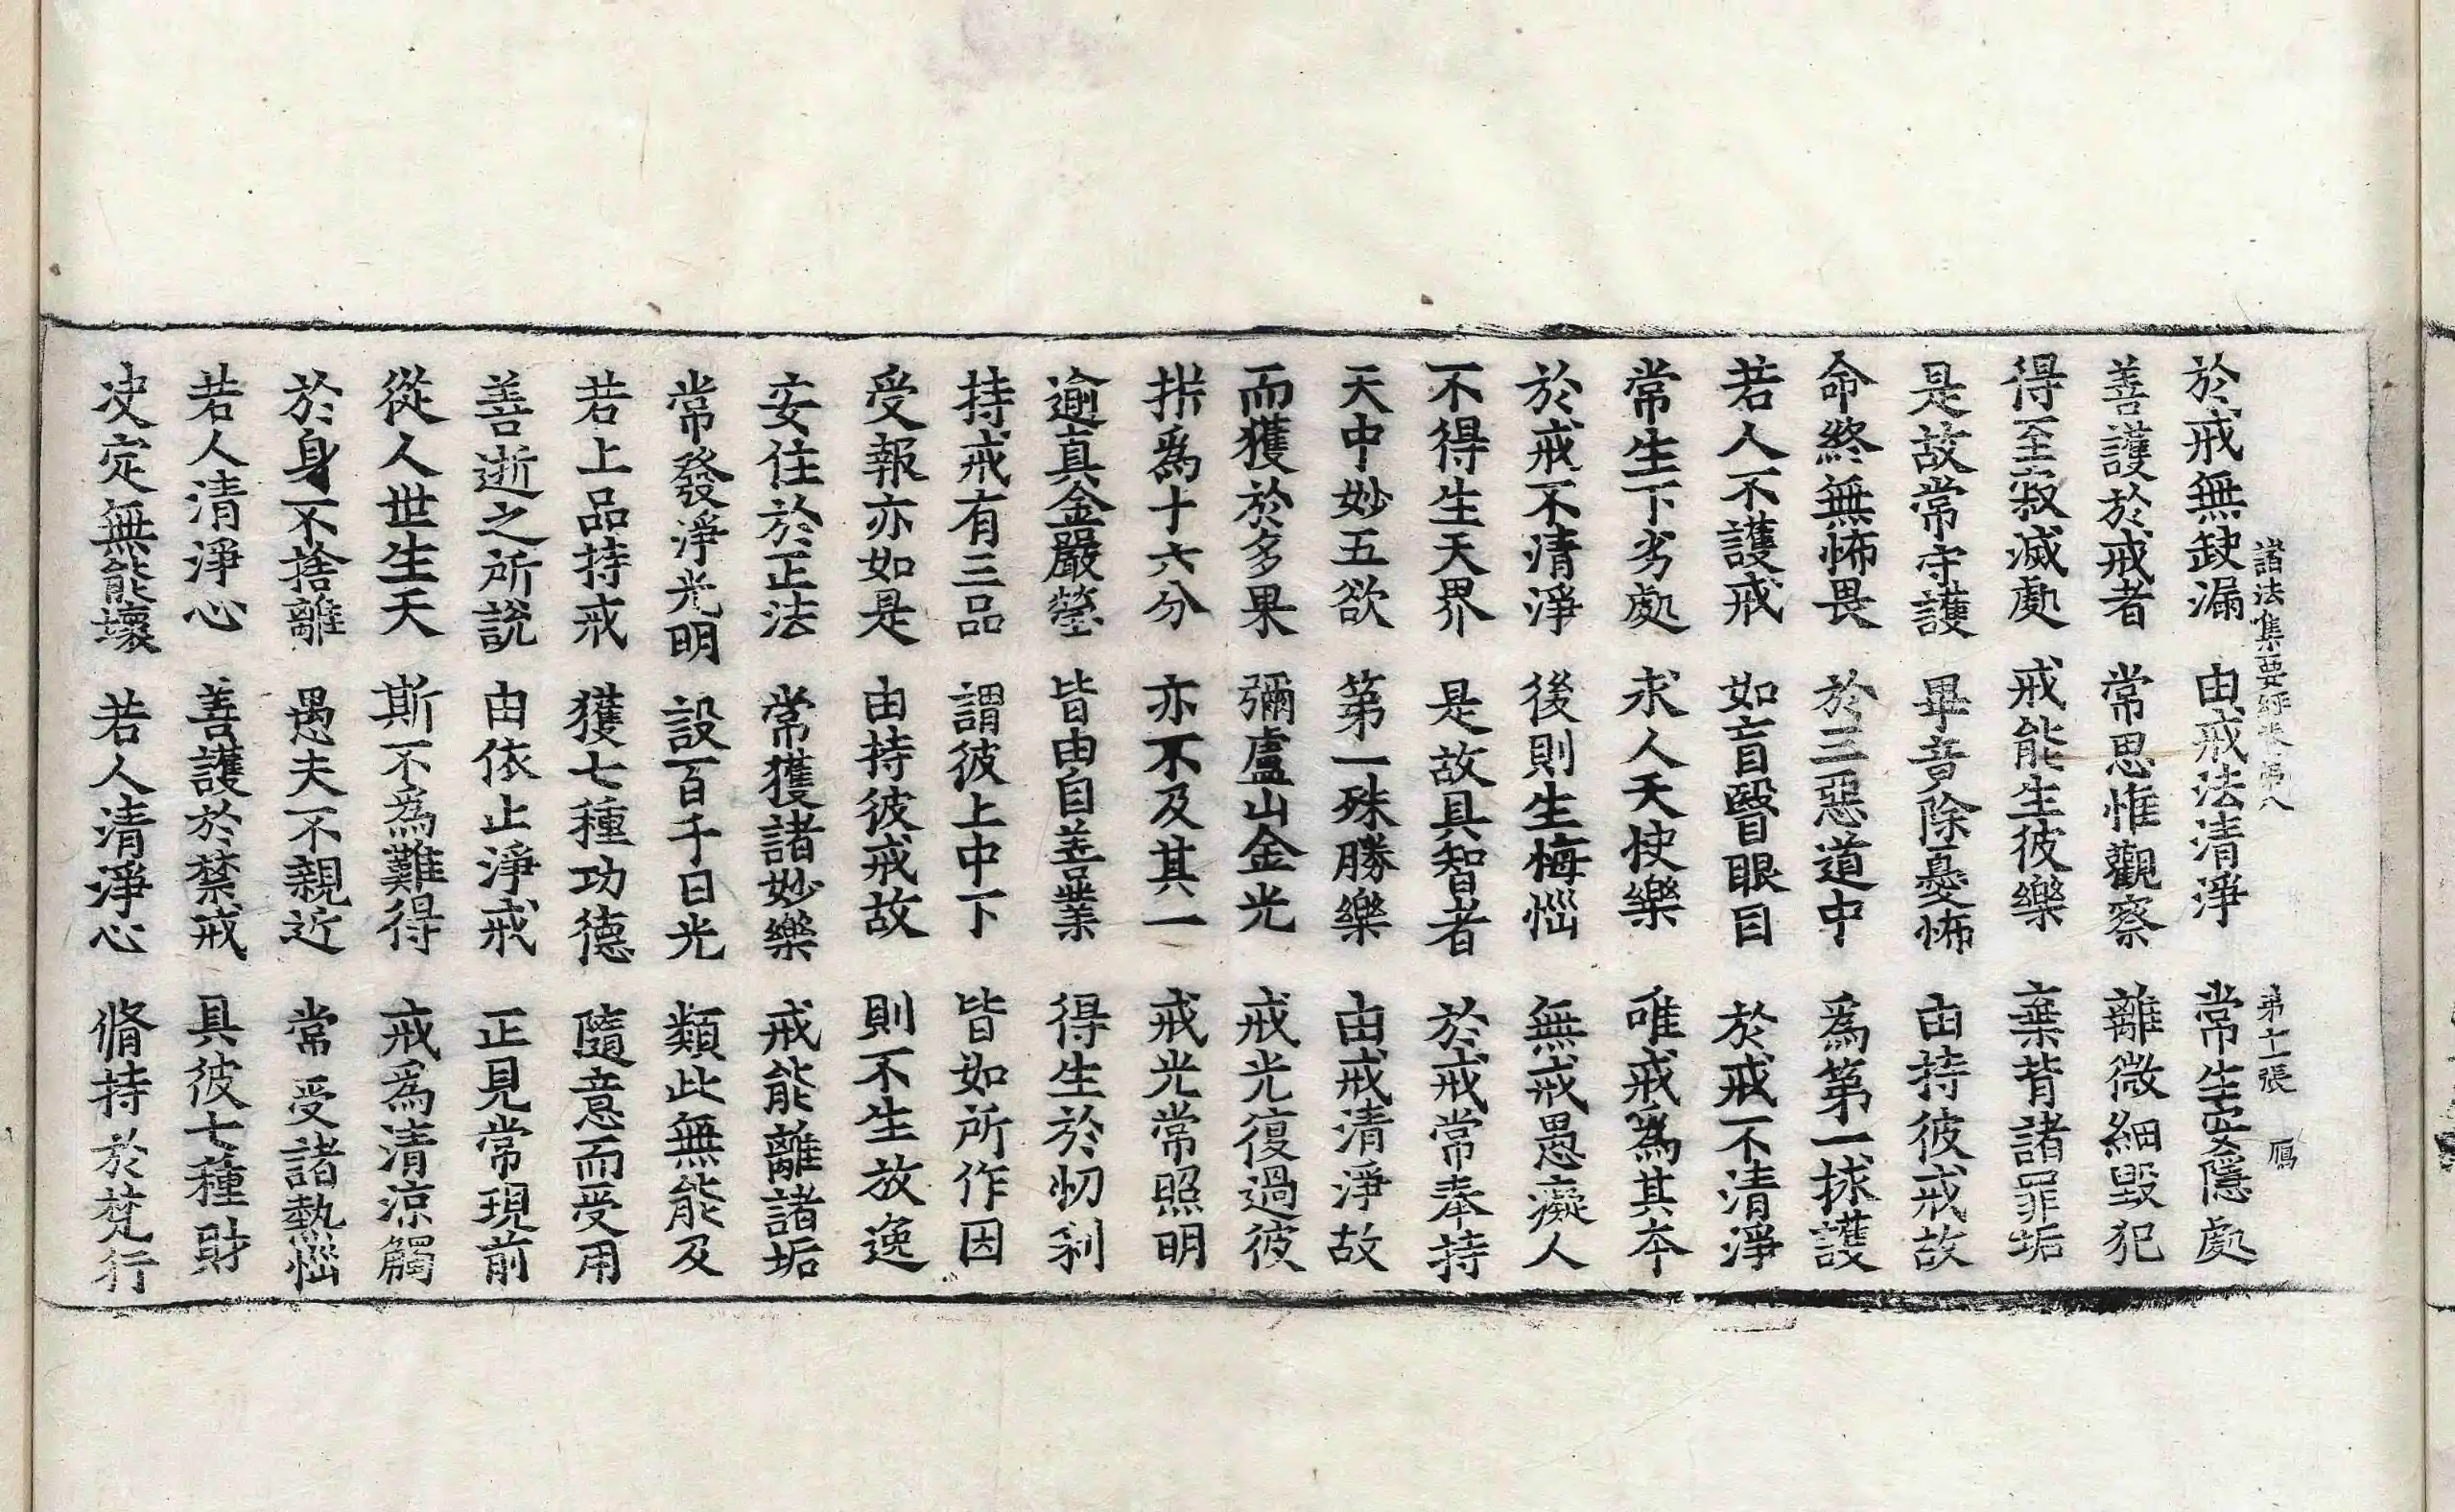 諸法集要經卷第八 第十一張 鴈
於戒無缺漏 由戒法清淨 常生安隱處
善護於戒者 常思惟觀察 離微細毀犯
得至寂滅處 戒能生彼樂 棄背諸罪垢
是故常守護 畢竟除憂怖 由持彼戒故
命終無怖畏 於三惡道中 爲第一捄護
若人不護戒 如盲瞖眼目 於戒不清淨
常生下劣處 求人天快樂 唯戒爲其本
於戒不清淨 後則生悔惱 無戒愚癡人
不得生天界 是故具智者 於戒常奉持
天中妙五欲 第一殊勝樂 由戒清淨故
而獲於多果 彌盧山金光 戒光復過彼
析爲十六分 亦不及其一 戒光常照明
逾真金嚴瑩 皆由自善業 得生於忉利
持戒有三品 謂彼上中下 皆如所作因
受報亦如是 由持彼戒故 則不生放逸
安住於正法 常獲諸妙樂 戒能離諸垢
常發淨光明 設百千日光 類此無能及
若上品持戒 獲七種功德 隨意而受用
善逝之所說 由依止淨戒 正見常現前
從人世生天 斯不爲難得 戒爲清涼觸
於身不捨離 愚夫不親近 常受諸熱惱
若人清淨心 善護於禁戒 具彼七種財
決定無能壞 若人清淨心 脩持於梵行